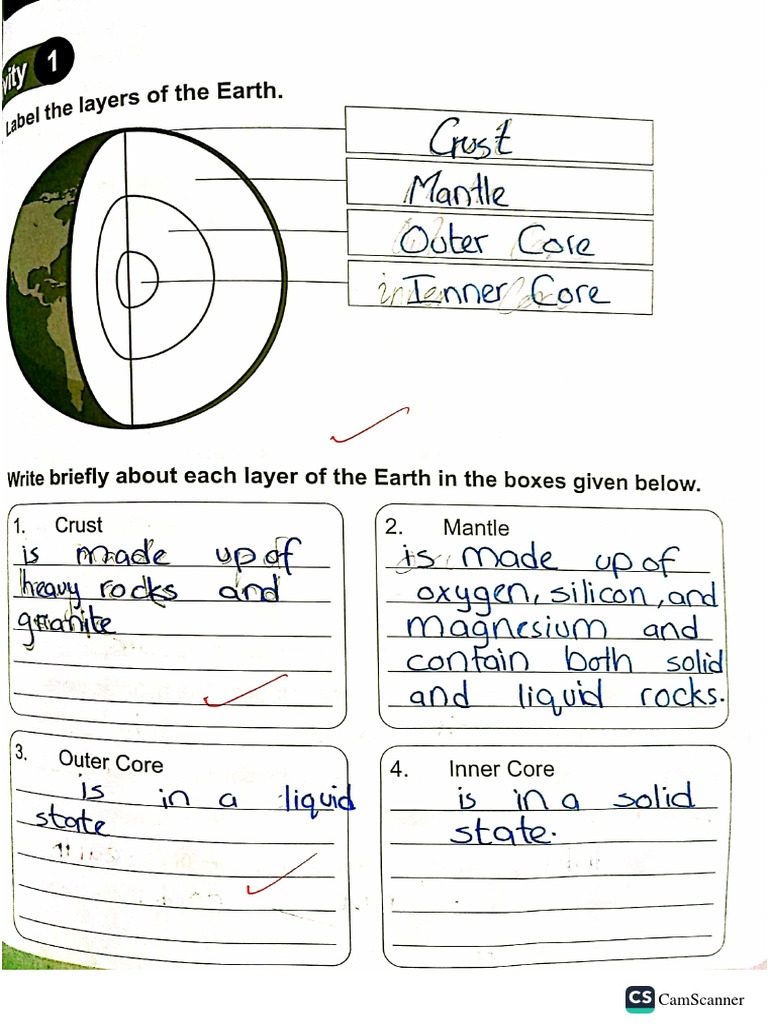 vity 1
Label the layers of the Earth.
Crust
Mantle
Outer Core
Inner Core
Write briefly about each layer of the Earth in the boxes given below.
1. Crust
is made up of
heavy rocks and
granite
2. Mantle
is made up of
oxygen, silicon, and
magnesium and
contain both solid
and liquid rocks.
3. Outer Core
is in a liquid
state
4. Inner Core
is in a solid
state.
CS CamScanner